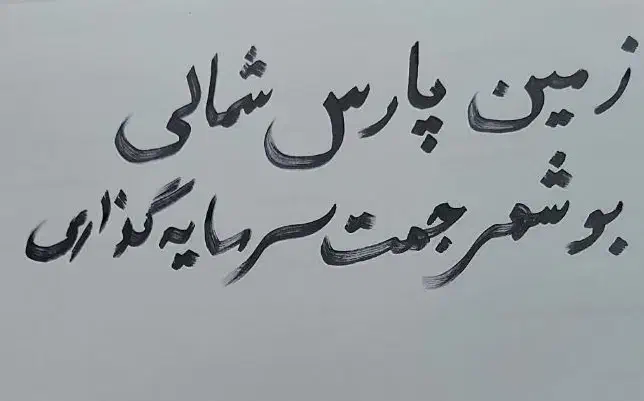 زمین پارس شمالی
بوشهر جهت سرمایه گذاری